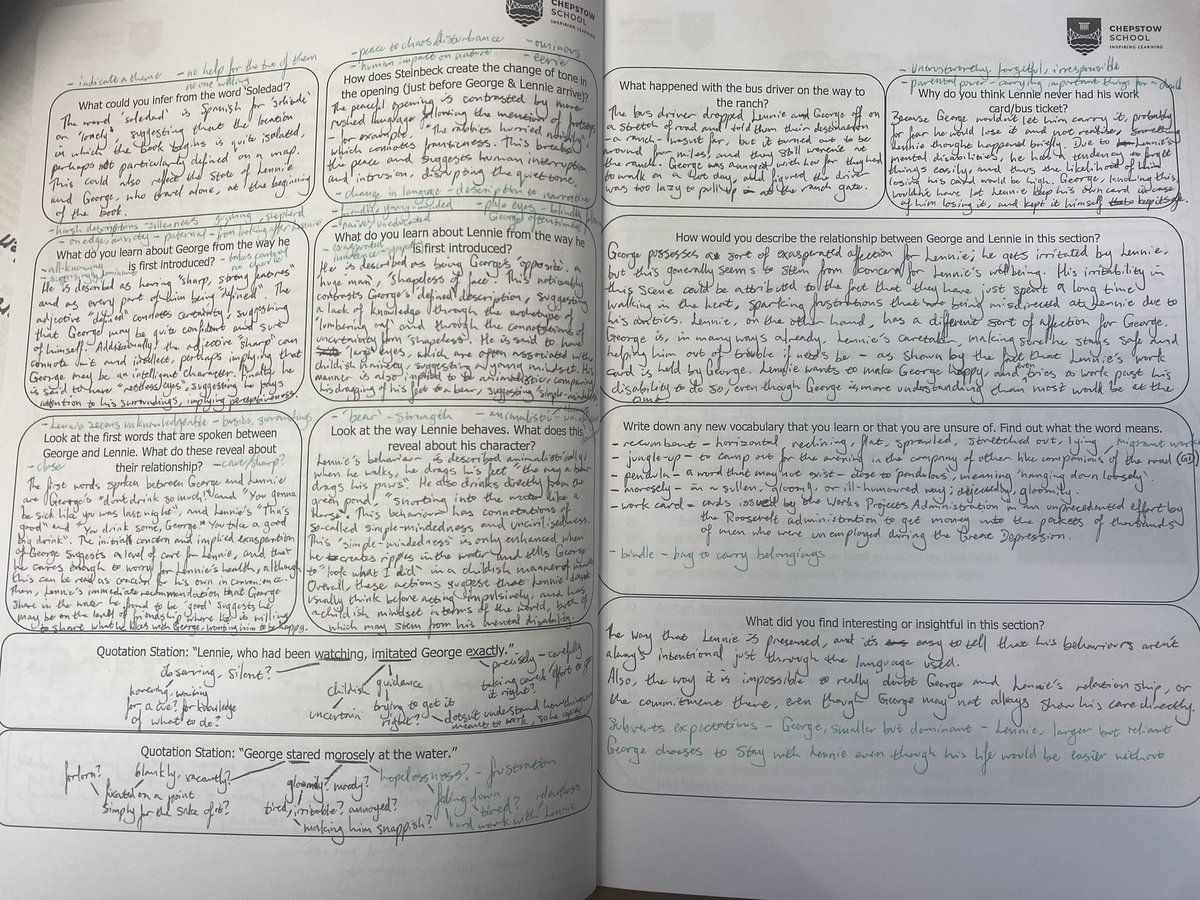 CHEPSTOW
SCHOOL
INSPIRING LEARNING
- indicate a theme - no help for the two of them
no one willing
What could you infer from the word 'Soledad'?
The word 'soledad' is Spanish for 'solitude'
or 'lonely', suggesting that the location
in which the book begins is quite isolated,
perhaps not particularly defined on a map.
This could also reflect the state of Lennie
and George, who travel alone, at the beginning
of the book.
- peace to chaos/disturbance - ominous
- human impact on nature - eerie
How does Steinbeck create the change of tone in
the opening (just before George & Lennie arrive)?
The peaceful opening is contrasted by more
rushed language following the mention of footsteps
- for example, "The rabbits hurried noisily",
which connotes franticness. This breaks
the peace and suggests human interruption
and intrusion, disrupting the quiet tone.
- change in language - description to narrative
- harsh descriptions - sullenness - guiding, shepherd
- on edge, anxiety - paternal - from looking after Lennie
What do you learn about George from the way he
is first introduced?
- all-knowing
- takes control
He is described as having "sharp, strong features"
and as every part of him being "defined". The
adjective "defined" connotes certainty, suggesting
that George may be quite confident and sure
of himself. Additionally, the adjective "sharp" can
connote wit and intellect, perhaps implying that
George may be an intelligent character. Finally, he
is said to have "restless eyes", suggesting he pays
attention to his surroundings, implying perceptiveness.
What do you learn about Lennie from the way he
is first introduced?
He is described as being George's "opposite, a
huge man", "shapeless of face". This noticeably
contrasts George's "defined" description, suggesting
a lack of knowledge through the archetype of
'lumbering oaf' and through the connotations of
uncertainty from "shapeless". He is said to have
"large" eyes, which are often associated with
childish anxiety, suggesting a young mindset. His
manner is also implied to be animalistic, comparing
his dragging of his feet to a bear, suggesting simple-mindedness
- Lennie seems unknowledgeable - basics, surroundings
Look at the first words that are spoken between
George and Lennie. What do these reveal about
their relationship?
- close
- care/sharp?
The first words spoken between George and Lennie
are George's "don't drink so much!" and "You gonna
be sick like you was last night", and Lennie's "Tha's
good" and "You drink some, George. You take a good
big drink". The initial concern and implied exasperation
of George suggests a level of care for Lennie, and that
he cares enough to worry for Lennie's health, although
this can be read as concern for his own inconvenience.
Then, Lennie's immediate recommendation that George
share in the water he found to be 'good' suggests he
may be on the level of friendship where he is willing
to share what he likes with George, wanting him to be happy.
- "bear" - strength - animalistic
Look at the way Lennie behaves. What does this
reveal about his character?
Lennie's behaviour is described animalistically;
when he walks, he drags his feet "the way a bear
drags his paws". He also drinks directly from the
green pond, "snorting into the water like a
horse". This behaviour has connotations of
so-called simple-mindedness and uncivilisedness.
This 'simple-mindedness' is only enhanced when
he creates ripples in the water and tells George
to "look what I did" in a childish manner of
Overall, these actions suggest that Lennie doesn't
usually think before acting impulsively, and has
a childish mindset in terms of the world, both of
which may stem from his mental disability.
Quotation Station: "Lennie, who had been watching, imitated George exactly."
observing, silent?
hovering, waiting
for a cue? for knowledge
of what to do?
childish
uncertain
guidance
trying to get it
right?
precisely - carefully
taking care & effort to get
it right?
doesn't understand how things
meant to work, so he copies
Quotation Station: "George stared morosely at the water."
forlorn?
blankly, vacantly?
fixated on a point
simply for the sake of it?
gloomily? moody?
tired, irritable? annoyed?
making him snappish?
hopelessness? - frustration
falling down
tired? relentless
hard work with Lennie
CHEPSTOW
SCHOOL
INSPIRING LEARNING
What happened with the bus driver on the way to
the ranch?
The bus driver dropped Lennie and George off on
a stretch of road and told them their destination
- a ranch - wasn't far, but it turned out to be
around four miles, and they still weren't at
the ranch. George was annoyed with how far they had
to walk on a hot day, and figured the driver
was too lazy to pull up at the ranch gate.
- untrustworthy, forgetful, irresponsible
- parental power, carrying important things for a child
Why do you think Lennie never had his work
card/bus ticket?
Because George wouldn't let him carry it, probably
for fear he would lose it and not realise, something
Lennie thought happened briefly. Due to Lennie's
mental disabilities, he has a tendency to forget
things easily, and thus the likelihood of him
losing his card would be high. George, knowing this
wouldn't have let Lennie keep his own card in case
of him losing it, and kept it himself to keep it safe.
How would you describe the relationship between George and Lennie in this section?
George possesses a sort of exasperated affection for Lennie; he gets irritated by Lennie,
but this generally seems to stem from concern for Lennie's wellbeing. His irritability in
this scene could be attributed to the fact that they have just spent a long time
walking in the heat, sparking frustrations that are being misdirected at Lennie due to
his antics. Lennie, on the other hand, has a different sort of affection for George.
George is, in many ways already, Lennie's caretaker, making sure he stays safe and
helping him out of trouble if needs be - as shown by the fact that Lennie's work
card is held by George. Lennie wants to make George happy, and even tries to work past his
disability to do so, even though George is more understanding than most would be at the
time.
Write down any new vocabulary that you learn or that you are unsure of. Find out what the word means.
- recumbant - horizontal, reclining, flat, sprawled, stretched out, lying
migrant work
- jungle-up - to camp out for the evening in the company of other like companions of the road
- pendula - a word that may not exist - close to 'pendulous', meaning 'hanging down loosely'.
- morosely - in a sullen, gloomy, or ill-humoured way; dejectedly, gloomily.
- work card - cards issued by the Works Projects Administration in an unprecedented effort by
the Roosevelt administration to get money into the pockets of thousands
of men who were unemployed during the Great Depression.
- bindle - bag to carry belongings
What did you find interesting or insightful in this section?
The way that Lennie is presented, and it's easy to tell that his behaviours aren't
always intentional just through the language used.
Also, the way it is impossible to really doubt George and Lennie's relationship, or
the commitment there, even though George may not always show his care directly.
Subverts expectations - George, smaller but dominant - Lennie, larger but reliant
George chooses to stay with Lennie even though his life would be easier without